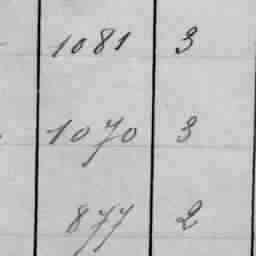 1081 3
1070 3
877 2